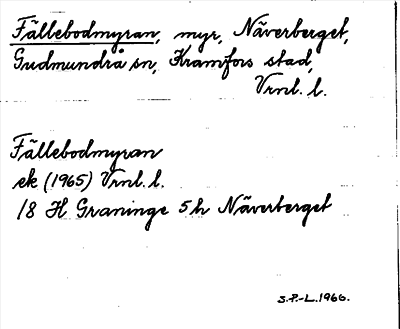 Fällebodmyran, myr, Näverberget,
Gudmundrå sn, Kramfors stad,
Vrnl. l.
Fällebodmyran
ek (1965) Vrnl. l.
18 H Graninge 5 h Näverberget
S.P.-L. 1966.